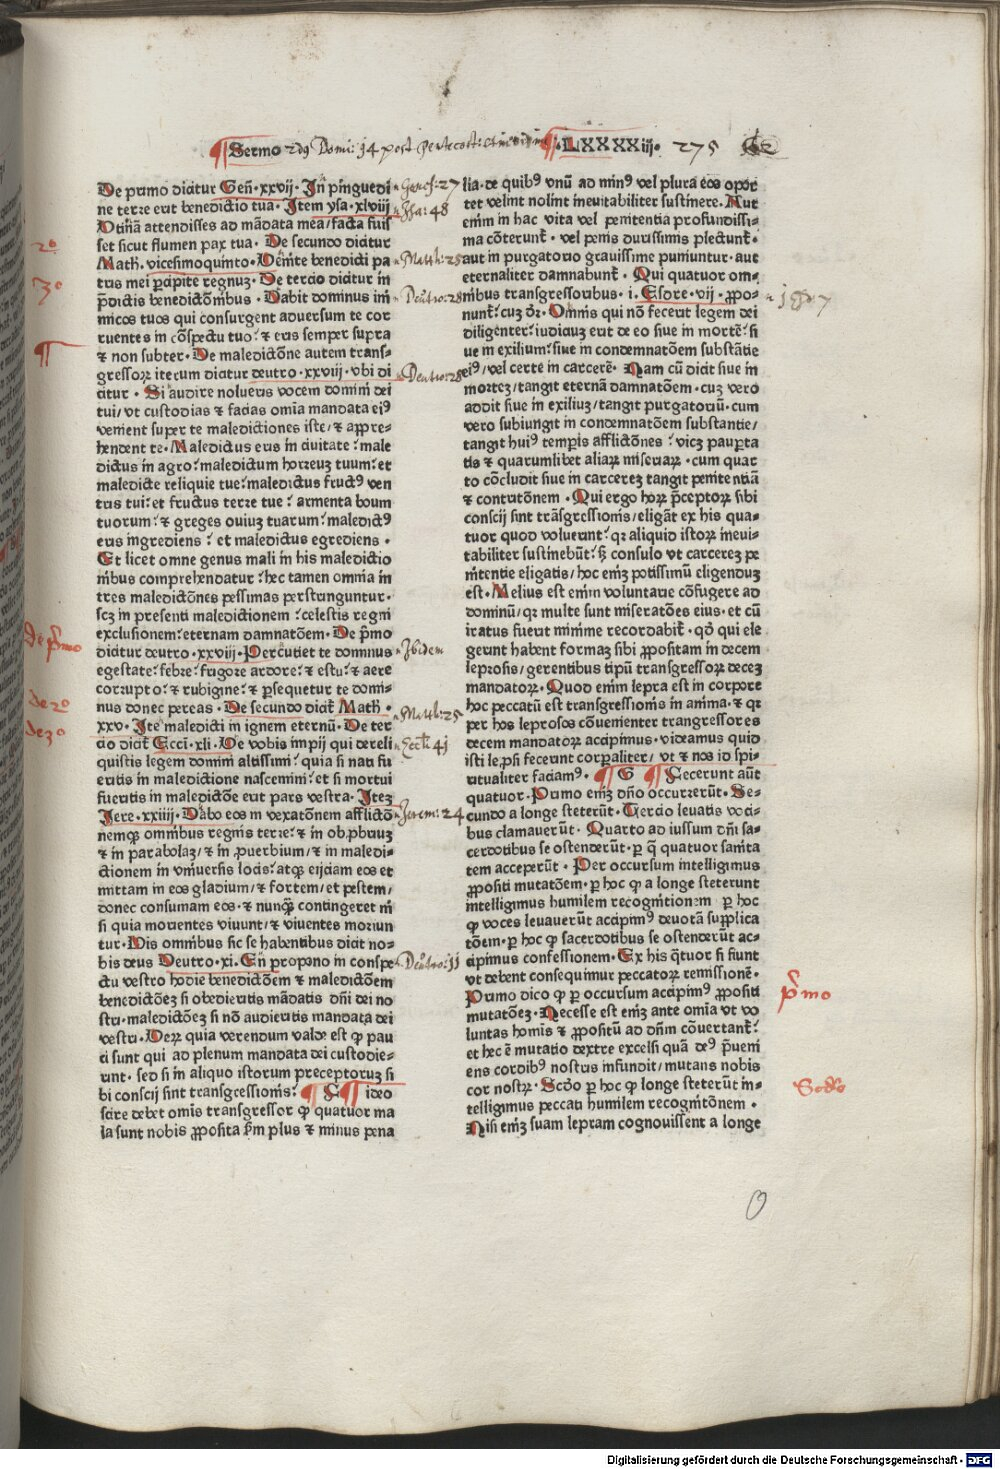 Sermo 2dq Domi: 14 post Pentecost: LXXXXiij. 275
De primo dicitur Gen̄. xxvij. In̄ pinguedi
ne terre erit benedictio tua. Item ysa. xlviij
Utinā attendisses ad mādata mea/facta fuis
set sicut flumen pax tua. De secundo dicitur
Math. vicesimoquinto. Uenite benedicti pa
tris mei p̄cipite regnuꝫ. De tercio dicitur in
p̄dictis benedictōnibus. Dabit dominus ini
micos tuos qui consurgent adversum te cor
ruentes in cōspectu tuo: ⁊ eris semper supra
⁊ non subter. De maledictōne autem trans-
gressoꝝ iterum dicitur deutro. xxviij. vbi di
citur. Si audire nolueris vocem domini dei
tui/vt custodias ⁊ facias omīa mandata eiꝰ
venient super te maledictiones iste/⁊ appre-
hendent te. Maledictus eris in ciuitate: male
dictus in agro: maledictum horreuꝫ tuum: et
maledicte reliquie tue: maledictus fructꝰ ven
tris tui: et fructus terre tue: armenta boum
tuorum: ⁊ greges ouiuꝫ tuarum: maledictꝰ
eris ingrediens: et maledictus egrediens.
Et licet omne genus mali in his maledictio
nibus comprehendatur: hec tamen omnia in
tres maledictōnes pessimas perstringuntur.
scꝫ in presenti maledictionem: celestis regni
exclusionem: eternam damnatōem. De p̄mo
dicitur deutro. xxviij. Percutiet te dominus
egestate: febre: frigore ardore: ⁊ estu: ⁊ aere
corrupto: ⁊ rubigine: ⁊ p̄sequetur te domi-
nus donec pereas. De secundo dicit᷑ Math.
xxv. Ite maledicti in ignem eternū. De ter
cio dicit᷑ Ecci. xli. Ue vobis impij qui dereli
quistis legem domini altissimi: quia si nati fu
eritis in maledictione nascemini: et si mortui
fueritis in maledictōe erit pars vestra. Iteꝫ
Jere. xxiiij. Dabo eos in vexatōnem afflictō
nemqꝫ omnibus regnis terre: ⁊ in ob͛pbriuꝫ
⁊ in parabolaꝫ/⁊ in ꝓuerbium/⁊ in maledi-
ctionem in vniuersis locis: atqꝫ eijciam eos et
mittam in eos gladium/⁊ fortem/et pestem/
donec consumam eos. ⁊ nunqꝫ contingeret nī
si quia morientes viuunt/⁊ viuentes moriun
tur. His omnibus sic se habentibus dicit no-
bis deus Deutro. xi. En̄ propono in conspe
ctu vestro hodie benedictōem ⁊ maledictōem
benedictōeꝫ si obedieritis mādatis dn̄i dei no
stri. maledictōeꝫ si nō audieritis mandata dei
vestri. Ueꝝ quia verendum valde est ꝙ pau
ci sunt qui ad plenum mandata dei custodie-
runt. sed si in aliquo istorum preceptoruꝫ si
bi conscij sint transgressionis: F ideo
scire debet omnis transgressor ꝙ quatuor ma
la sunt nobis ꝓposita ẜm plus ⁊ minus pena
Genes: 27
Isa: 48
Matth: 25
Deutro: 28
Deutro: 28
Ibidem
Matth: 25
Eccli: 41
Jerem: 24
Deutro: 11
2º
3º
de p̄mo
de 2º
de 3º
lia. de quibꝰ vnū ad minꝰ vel plura eos opor
tet velint nolint ineuitabiliter sustinere. Aut
enim in hac vita vel penitentia profundissi-
ma cōterunt᷑. vel penis durissimis plectunt᷑.
aut in purgatorio grauissime puniuntur. aut
eternaliter damnabunt᷑. Qui quatuor om-
nibus transgressoribus. i. Esdre. vij. ꝓpo-
nunt᷑: cuꝫ dꝛ. Omnis qui nō fecerit legem dei
diligenter: iudiciuꝫ erit de eo siue in mortē: si
ue in exilium: siue in condemnatōem substātie
eiꝰ/vel certe in carcerē. Nam cū dicit siue in
morteꝫ/tangit eternā damnatōem. cuꝫ vero
addit siue in exiliuꝫ/tangit purgatoriū. cum
vero subiungit in condemnatōem substantie/
tangit huiꝰ tempīs afflictōnes: vicꝫ pauperta
tis ⁊ quarumlibet aliaꝝ miseriaꝝ. cum quar
to cōcludit siue in carcereꝫ tangit penitentiā
⁊ contritōnem. Qui ergo hoꝝ p̄ceptoꝝ sibi
conscij sint trāsgressionis/eligāt ex his qua-
tuor quod voluerint: qꝛ aliquid istoꝝ ineui-
tabiliter sustinebūt: sꝫ consulo vt carcereꝫ pe
nitentie eligatis/hoc eniꝫ potissimū eligenduꝫ
est. Melius est enim voluntarie cōfugere ad
dominū/qꝛ multe sunt miseratōes eius. et cū
iratus fuerit minime recordabit᷑. qd̄ qui ele
gerint habent formaꝫ sibi ꝓpositam in decem
leprosis/gerentibus tipū transgressoꝝ deceꝫ
mandatoꝝ. Quod enim lepra est in corpore
hoc peccatū est transgressionis in anima. ⁊ qꝛ
per hos leprosos cōuenienter trangressores
decem mandatoꝝ accipimus. videamus quid
isti leꝓsi fecerint corꝑaliter/vt ⁊ nos id spi-
ritualiter faciamꝰ. G Fecerunt aūt
quatuor. Primo eniꝫ dn̄o occurrerūt. Se-
cundo a longe steterūt. Tercio leuatis voci-
bus clamauerūt. Quarto ad iussum dn̄i sa-
cerdotibus se ostenderūt. ꝑ q̄ quatuor sanita
tem acceperūt. Per occursum intelligimus
ꝓpositi mutatōem. ꝑ hoc ꝙ a longe steterunt
intelligimus humilem recognitionem ꝑ hoc
ꝙ voces leuauerūt accipimꝰ deuotā supplica
tōem. ꝑ hoc ꝙ sacerdotibus se ostenderūt ac-
cipimus confessionem. Ex his q̄tuor si fiunt
vt debent consequimur peccatoꝝ remissionē.
Primo dico ꝙ ꝑ occursum accipimꝰ ꝓpositi
mutatōeꝫ. Necesse est eniꝫ ante omīa vt vo
luntas homīs ⁊ ꝓpositū ad dn̄m cōuertant᷑:
et hec ē mutatio dextre excelsi quā deꝰ p̄ueni
ens cordibꝰ nostris infundit/mutans nobis
cor nostꝝ. Scd̄o ꝑ hoc ꝙ longe steterūt in-
telligimus peccati humilem recognitōnem.
Nisi eniꝫ suam lepram cognouissent a longe
p̄mo
Scdo
Digitalisierung gefördert durch die Deutsche Forschungsgemeinschaft - DFG